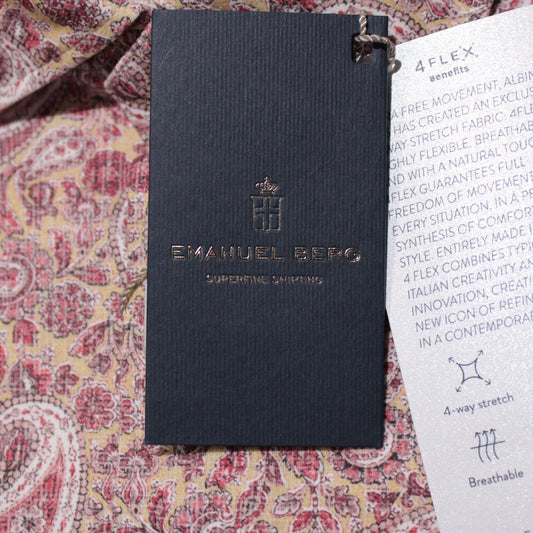 EMANUEL BERG
SUPERFINE SHIRTING
4FLEX
Benefits
A FREE MOVEMENT, ALBIN
HAS CREATED AN EXCLUS
WAY STRETCH FABRIC: 4FLE
HLY FLEXIBLE, BREATHAB
ND WITH A NATURAL TOUC
FLEX GUARANTEES FULL
FREEDOM OF MOVEMENT
EVERY SITUATION, IN A PE
SYNTHESIS OF COMFOR
STYLE. ENTIRELY MADE I
4 FLEX COMBINES TYPI
ITALIAN CREATIVITY AN
INNOVATION, CREAT
NEW ICON OF REFIN
IN A CONTEMPORA
4-way stretch
Breathable